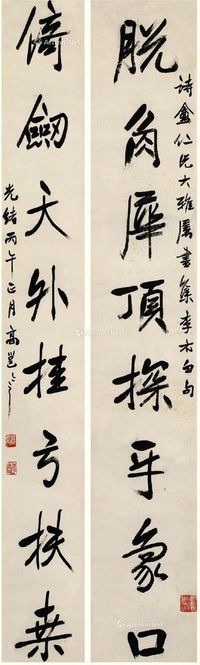 詩盦仁兄大雅屬書集李太白句
脱角犀頂探牙象口
倚劒天外挂弓扶桑
光緒丙午正月高邕之